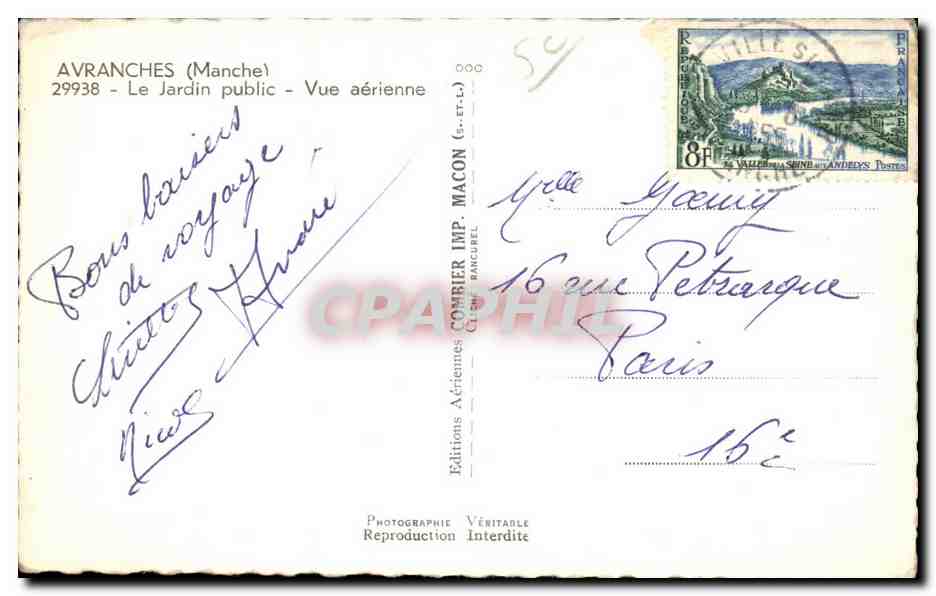 AVRANCHES (Manche)
29938 - Le Jardin public - Vue aérienne
Bons baisers
de voyage
Nicole
Editions Aériennes COMBIER IMP. MACON (S.-ET-L.)
CLICHÉ RANCUREL
PHOTOGRAPHIE VÉRITABLE
Reproduction Interdite
54
REPUBLIQUE
FRANCAISE
8F
LA VALLEE DE LA SEINE AUX ANDELYS POSTES
Mlle
16 rue Petrarque
Paris
16e
CPAPHIL